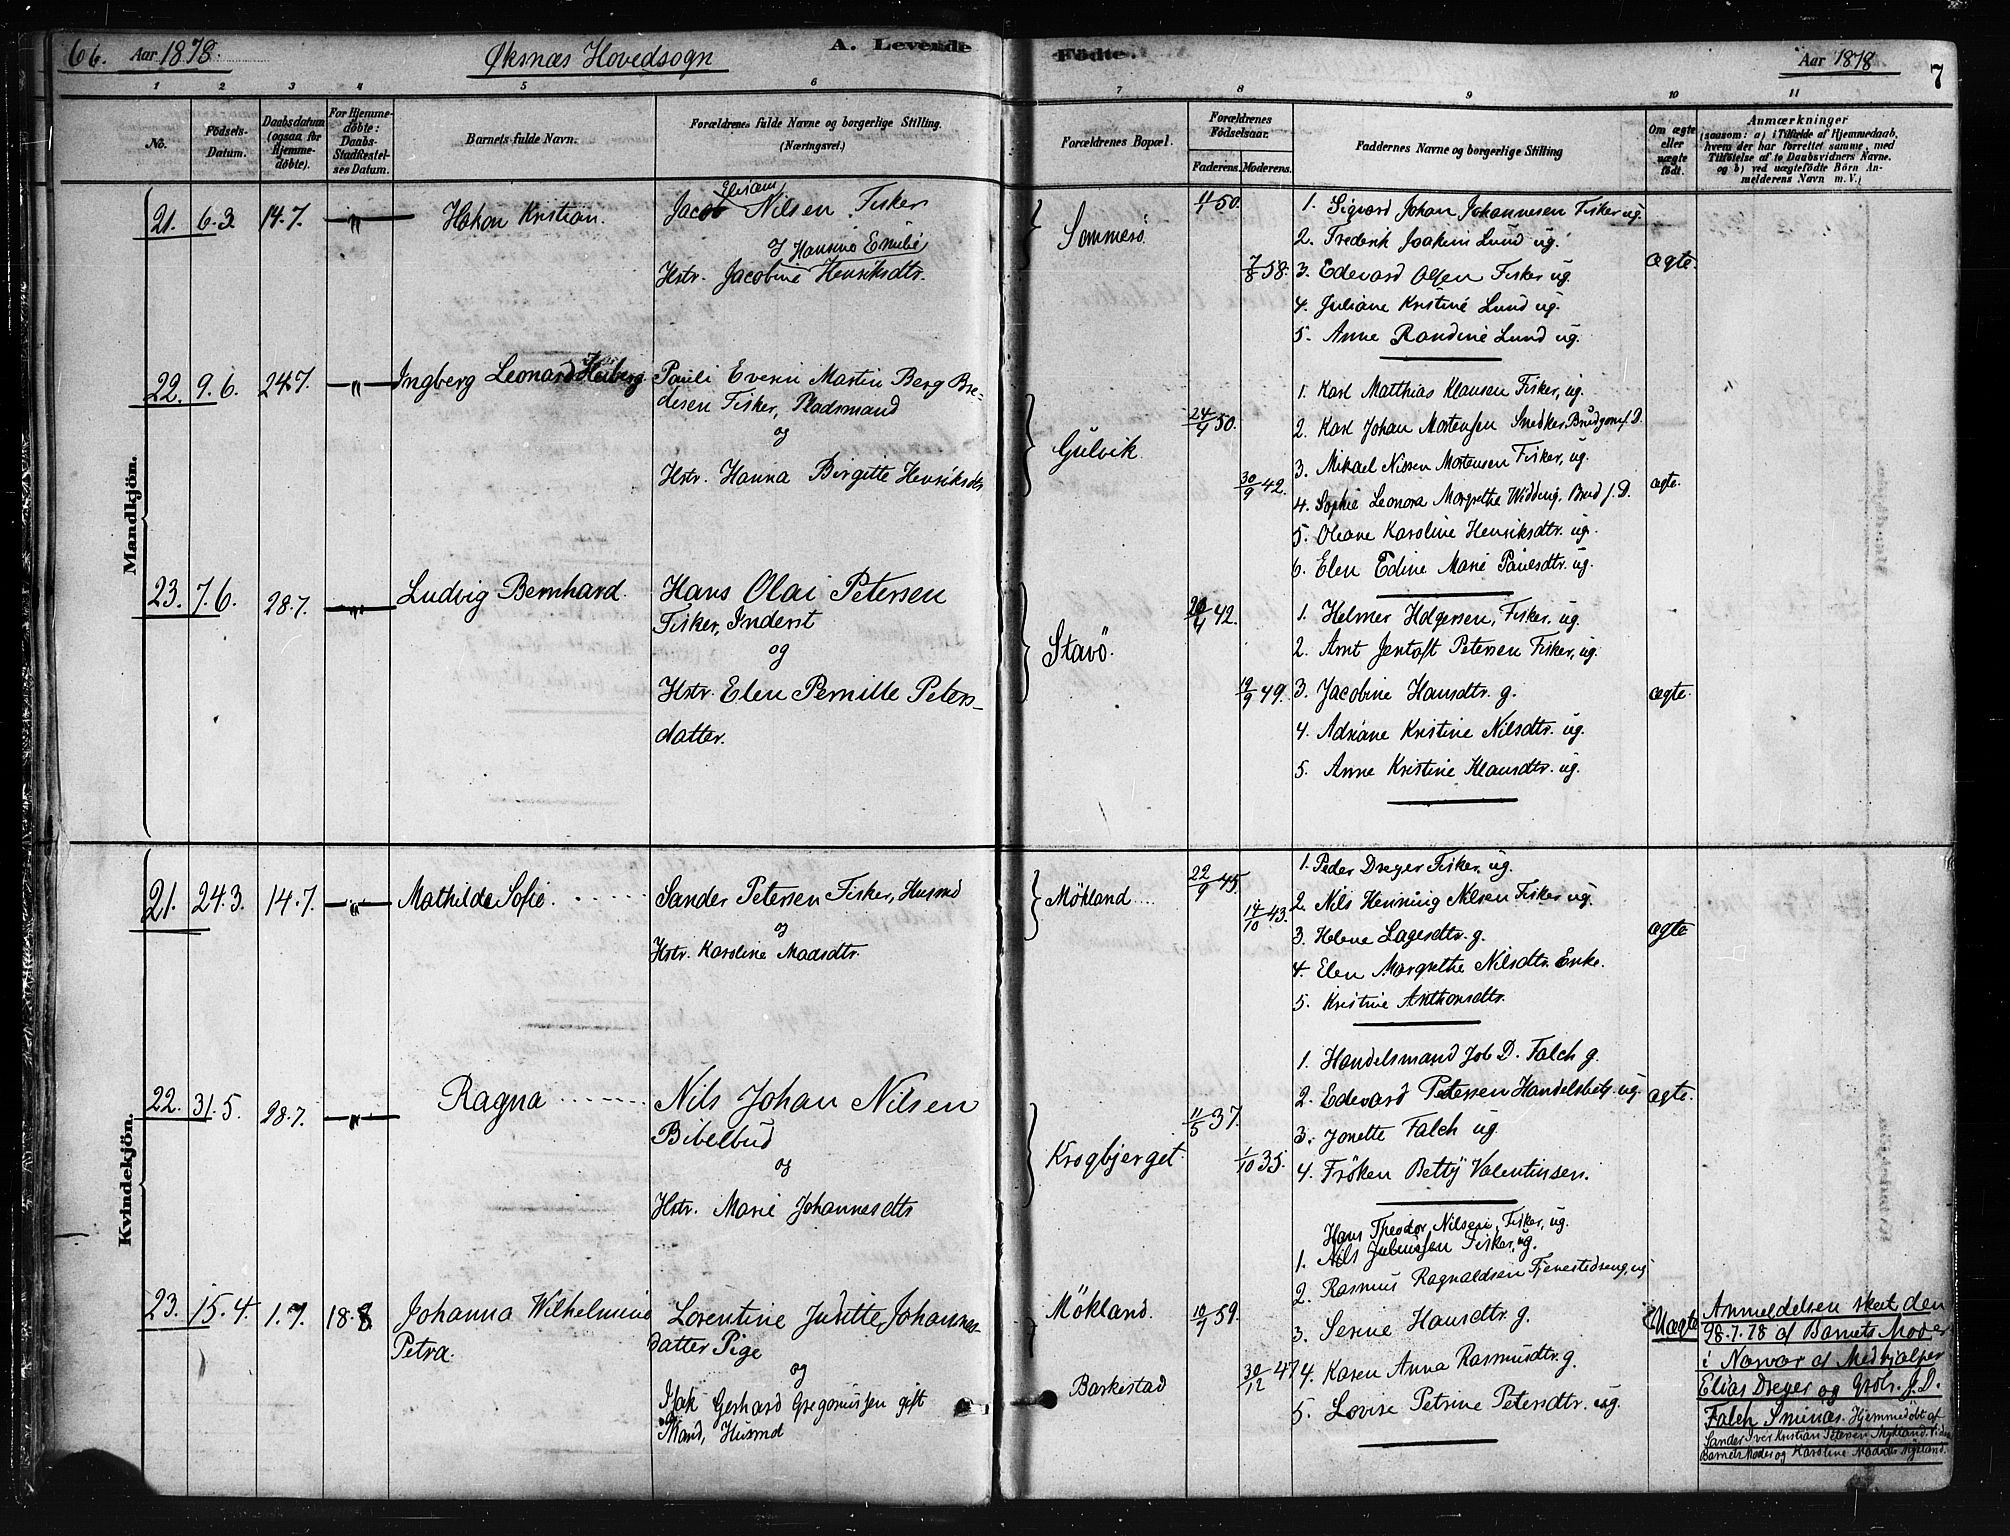 66. Aar 1878. Øksnæs Hovedsogn A. Levende Fødte. Aar 1878 7
1 2 3 4 5 6 7 8 9 10 11
No.
Födsels-Datum.
Daabsdatum (ogsaa for Hjemme-döbte).
For Hjemme-döbte: Daabs-Stadfæstel-ses Datum.
Barnets fulde Navn.
Forældrenes fulde Navne og borgerlige Stilling.
(Næringsvei.)
Forældrenes Bopæl.
Forældrenes Födselsaar.
Faderens. Moderens.
Faddernes Navne og borgerlige Stilling
Om ægte eller uægte födt.
Anmærkninger
(saasom: a) i Tilfælde af Hjemmedaab,
hvem der har forrettet samme, med
Tilföielse af to Daabsvidners Navne.
og b) ved uægtefödte Börn An-
melderens Navn m. V.)
Mandkjön.
21. 6.3. 14.7. " Hakon Kristian.
Jacob Nilsen Fisker
og Hansine Emilie
Hstr. Jacobine Henriksdtr.
Sommerö.
50.
7/8 58.
1. Sigvard Johan Johannesen Fisker ug.
2. Frederik Joakim Lund ug.
3. Edevard Olsen Fisker ug.
4. Juliane Kristine Lund ug.
5. Anne Randine Lund ug.
ægte.
22. 9.6. 24.7. " Ingberg Leonard Heiberg
Pauli Everin Martin Berg Bre-
desen Fisker, Pladsmand
og
Hstr. Hanna Birgitte Henriksdtr
Gulvik.
24/4 50.
30/9 42.
1. Karl Matthias Klausen Fisker, ug.
2. Karl Johan Mortensen Snedker Brudgom f. D.
3. Mikael Nissen Mortensen Fisker, ug.
4. Sophie Leonora Margrethe Widding. Brud f. D.
5. Oliane Karoline Henriksdtr. ug.
6. Elen Edine Marie Paulsdtr. ug.
ægte.
23. 7.6. 28.7. " Ludvig Bernhard.
Hans Olai Petersen
Fisker, Inderst
og
Hstr. Elen Pernille Peters-
datter.
Stavö.
42.
19/9 49.
1. Helmer Holgersen, Fisker. ug.
2. Arnt Jentoft Petersen Fisker, ug.
3. Jacobine Hansdtr. g.
4. Adriane Kristine Nilsdtr. ug.
5. Anne Kristine Klausdtr. ug.
ægte.
Kvindekjön.
21. 24.3. 14.7. " Mathilde Sofie.
Sander Petersen Fisker, Husmd
og
Hstr. Karoline Madsdtr.
Møkland
22/9 45.
14/10 43.
1. Peder Dreyer Fisker, ug.
2. Nils Henning Nilsen Fisker ug.
3. Helene Lagesdtr. g.
4. Elen Margrethe Nilsdtr. Enke.
5. Kristine Anthonsdtr.
ægte
22. 31.5. 28.7. " Ragna
Nils Johan Nilsen
Bibelbud
og
Hstr. Marie Johannesdtr
Krogbjerget.
11/5 37.
1/10 35.
1. Handelsmand Job D. Falch g.
2. Edevard Petersen Handelsbetj. ug.
3. Jonette Falch ug.
4. Frøken Betty Valentinsen.
ægte.
23. 15.4. 1.7. 18.8 Johanna Wilhelmine
Petra.
Lorentine Juditte Johannes-
datter Pige
og
Isak Gerhard Gregoriussen gift
Mand, Husmd
Møkland.
Barkestad
59.
30/12 47
Hans Theodor Nilsen, Fisker, ug.
1. Nils Juliussen Fisker, ug.
2. Rasmus Ragnaldsen Tjenestedreng, ug
3. Serine Hansdtr. g.
4. Karen Anna Rasmusdtr. g.
5. Lovise Petrine Petersdtr. ug.
Uægte
Anmeldelsen skeet den
28.7.78 af Barnets Moder
i Nærvær af Medhjælper
Elias Dreyer og J. D.
Falch Smines. Hjemmedöbt af
Sander Iver Kristian Petersen Mykland. Vidne
Barnets Moder og Karoline Madsdtr Mykland.